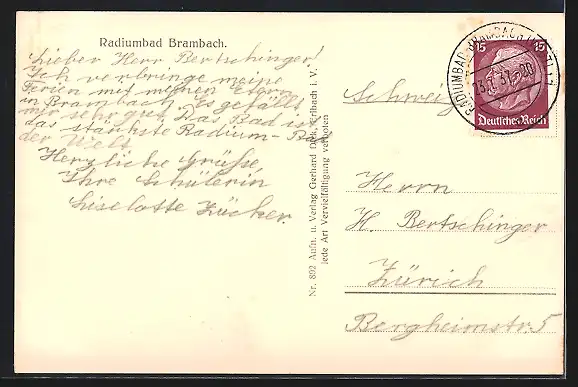 Radiumbad Brambach.
Lieber Herr Bertschinger!
Ich verbringe meine
Ferien mit meinen Eltern
in Brambach. Es gefällt
mir sehr gut. Das Bad ist
das stärkste Radium-Bad
der Welt.
Herzliche Grüße
Ihre Schülerin
Liselotte Zücker.
Nr. 892 Aufn. u. Verlag Gerhard Erlbach i. V.
jede Art Vervielfältigung verboten
RADIUMBAD BRAMBACH
15 15
Deutsches Reich
Schweiz
Herrn
H. Bertschinger
Zürich
Bergheimstr. 5